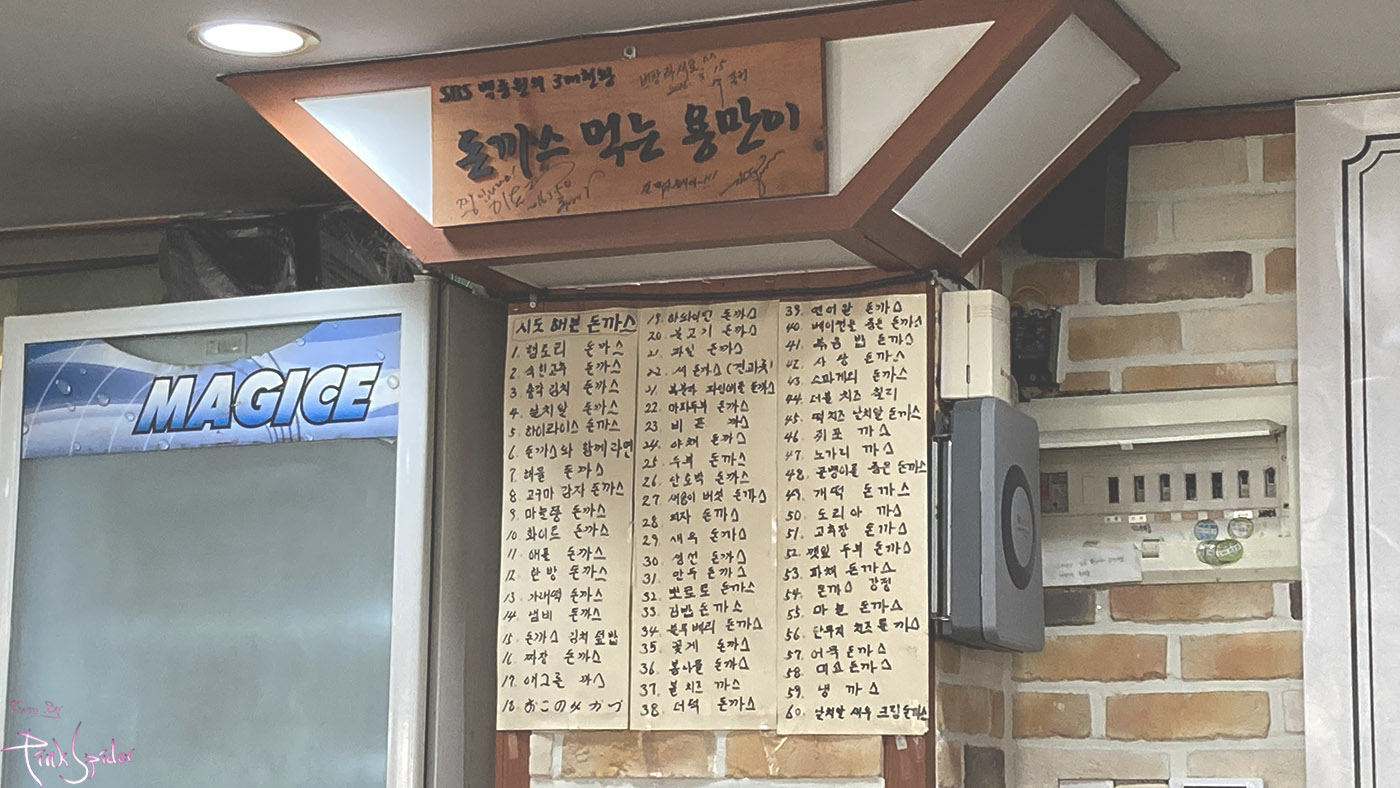 SBS 백종원의 3대천왕
돈까스 먹는 용만이
MAGICE
시도해본 돈까스
1. 햄토리 돈까스
2. 속힌고추 돈까스
3 총각김치 돈까스
4. 날치알 돈까스
5. 하이라이스 돈까스
6. 돈까스와 함께라면
7. 해물 돈까스
8. 고구마 감자 돈까스
9. 마늘쫑 돈까스
10 화이트 돈까스
11 애플 돈까스
12 한방 돈까스
13 가래떡 돈까스
14 냄비 돈까스
15 돈까스 김치 덮밥
16 짜장 돈까스
17. 에그론 까스
18 おこのみカツ
19. 하와이안 돈까스
20 불고기 돈까스
21. 과일 돈까스
22. 씨돈까스 (견과류)
21. 복분자 파인애플 돈까스
22. 마파두부 돈까스
23. 비프 까스
24. 야채 돈까스
25. 두부 돈까스
26. 단호박 돈까스
27. 새송이 버섯 돈까스
28. 피자 돈까스
29. 새우 돈까스
30. 생선 돈까스
31. 만두 돈까스
32. 뽀로로 돈까스
33. 김밥 돈까스
34. 블루베리 돈까스
35. 꽃게 돈까스
36. 봄나물 돈까스
37. 볼치즈 까스
38. 더덕 돈까스
39. 연어알 돈까스
40. 베이컨을 품은 돈까스
41. 볶음밥 돈까스
42. 사상 돈까스
43. 스파게티 돈까스
44. 더블 치즈 칠리
45. 떡치즈 날치알 돈까스
46. 쥐포 까스
47. 노가리 까스
48. 골뱅이를 품은 돈까스
49. 개떡 돈까스
50. 도리아 까스
51. 고추장 돈까스
52. 깻잎 두부 돈까스
53. 파채 돈까스
54. 돈까스 강정
55. 마늘 돈까스
56. 단무지 치즈롤 까스
57. 어묵 돈까스
58. 미소 돈까스
59. 냉 까스
60. 날치알 새우 크림 돈까스
Pink Spider